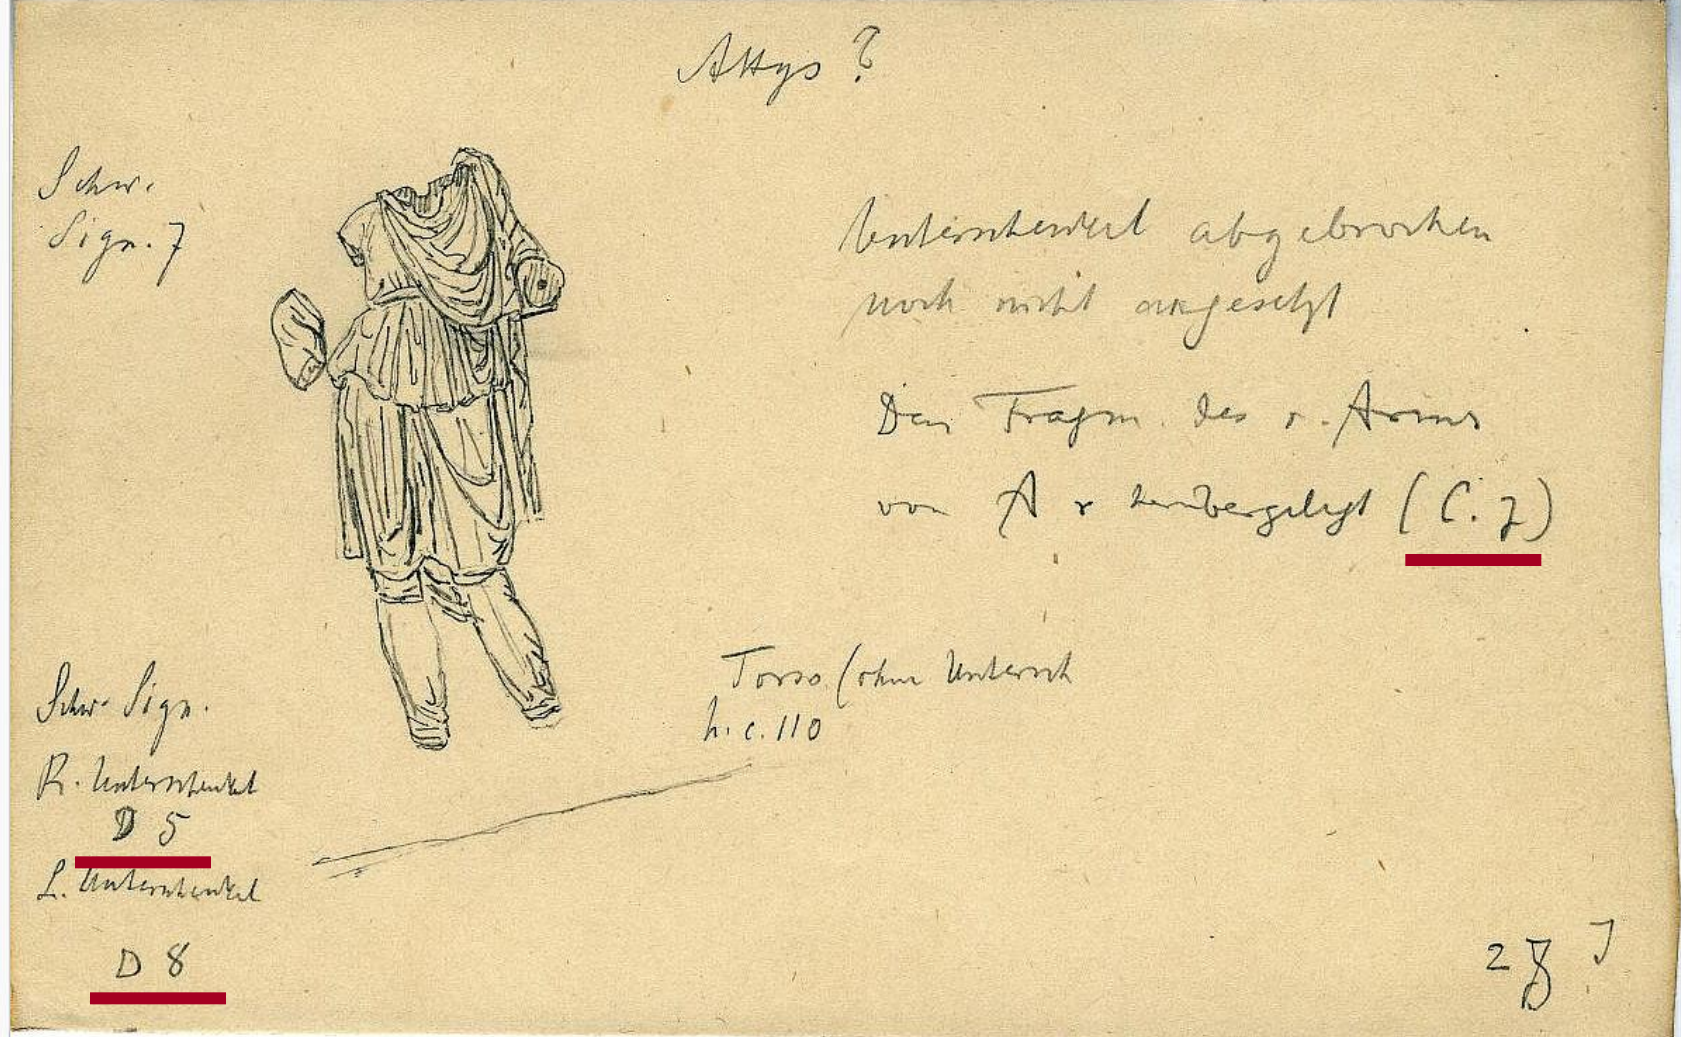 Attys ?
Schw.
Sign. 7
Unterschenkel abgebrochen
noch nicht angesetzt
Das Fragm. des r. Arms
von A r herübergelegt (C. 7)
Torso (ohne Untersch
h. c. 110
Schw. Sign.
R. Unterschenkel
D 5
L. Unterschenkel
D 8